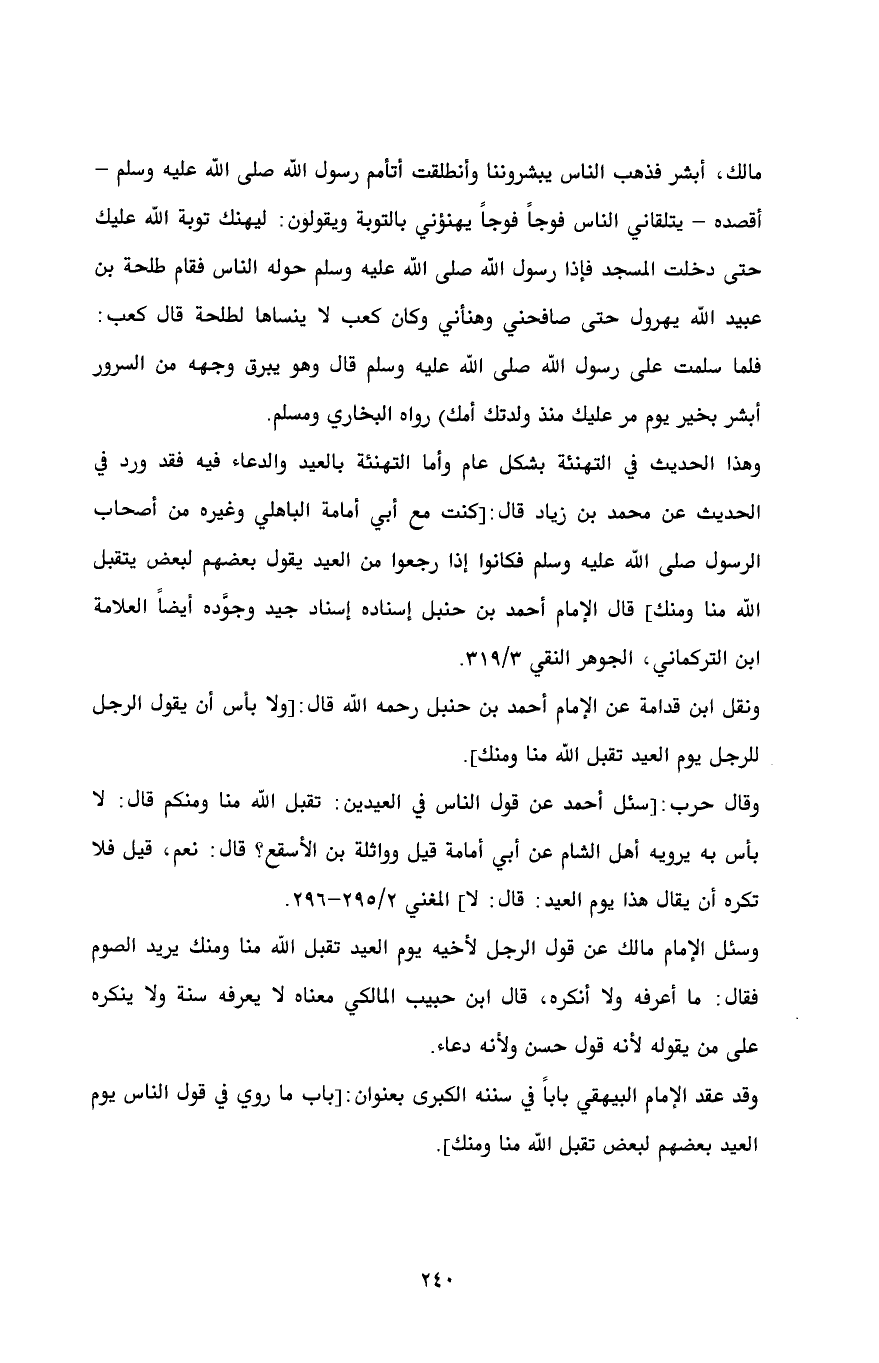 مالك، أبشر فذهب الناس يبشروننا وأنطلقت أتأمم رسول الله صلى الله عليه وسلم –
أقصده – يتلقاني الناس فوجاً فوجاً يهنؤني بالتوبة ويقولون: ليهنك توبة الله عليك
حتى دخلت المسجد فإذا رسول الله صلى الله عليه وسلم حوله الناس فقام طلحة بن
عبيد الله يهرول حتى صافحني وهنأني وكان كعب لا ينساها لطلحة قال كعب:
فلما سلمت على رسول الله صلى الله عليه وسلم قال وهو يبرق وجهه من السرور
أبشر بخير يوم مر عليك منذ ولدتك أمك) رواه البخاري ومسلم.
وهذا الحديث في التهنئة بشكل عام وأما التهنئة بالعيد والدعاء فيه فقد ورد في
الحديث عن محمد بن زياد قال:[كنت مع أبي أمامة الباهلي وغيره من أصحاب
الرسول صلى الله عليه وسلم فكانوا إذا رجعوا من العيد يقول بعضهم لبعض يتقبل
الله منا ومنك] قال الإمام أحمد بن حنبل إسناده إسناد جيد وجوَّده أيضاً العلامة
ابن التركماني، الجوهر النقي ٣/‏٣١٩.
ونقل ابن قدامة عن الإمام أحمد بن حنبل رحمه الله قال:[ولا بأس أن يقول الرجل
للرجل يوم العيد تقبل الله منا ومنك].
وقال حرب:[سئل أحمد عن قول الناس في العيدين: تقبل الله منا ومنكم قال: لا
بأس به يرويه أهل الشام عن أبي أمامة قيل وواثلة بن الأسقع؟ قال: نعم، قيل فلا
تكره أن يقال هذا يوم العيد: قال: لا] المغني ٢/‏٢٩٥–٢٩٦.
وسئل الإمام مالك عن قول الرجل لأخيه يوم العيد تقبل الله منا ومنك يريد الصوم
فقال: ما أعرفه ولا أنكره، قال ابن حبيب المالكي معناه لا يعرفه سنة ولا ينكره
على من يقوله لأنه قول حسن ولأنه دعاء.
وقد عقد الإمام البيهقي باباً في سننه الكبرى بعنوان:[باب ما روي في قول الناس يوم
العيد بعضهم لبعض تقبل الله منا ومنك].
٢٤٠